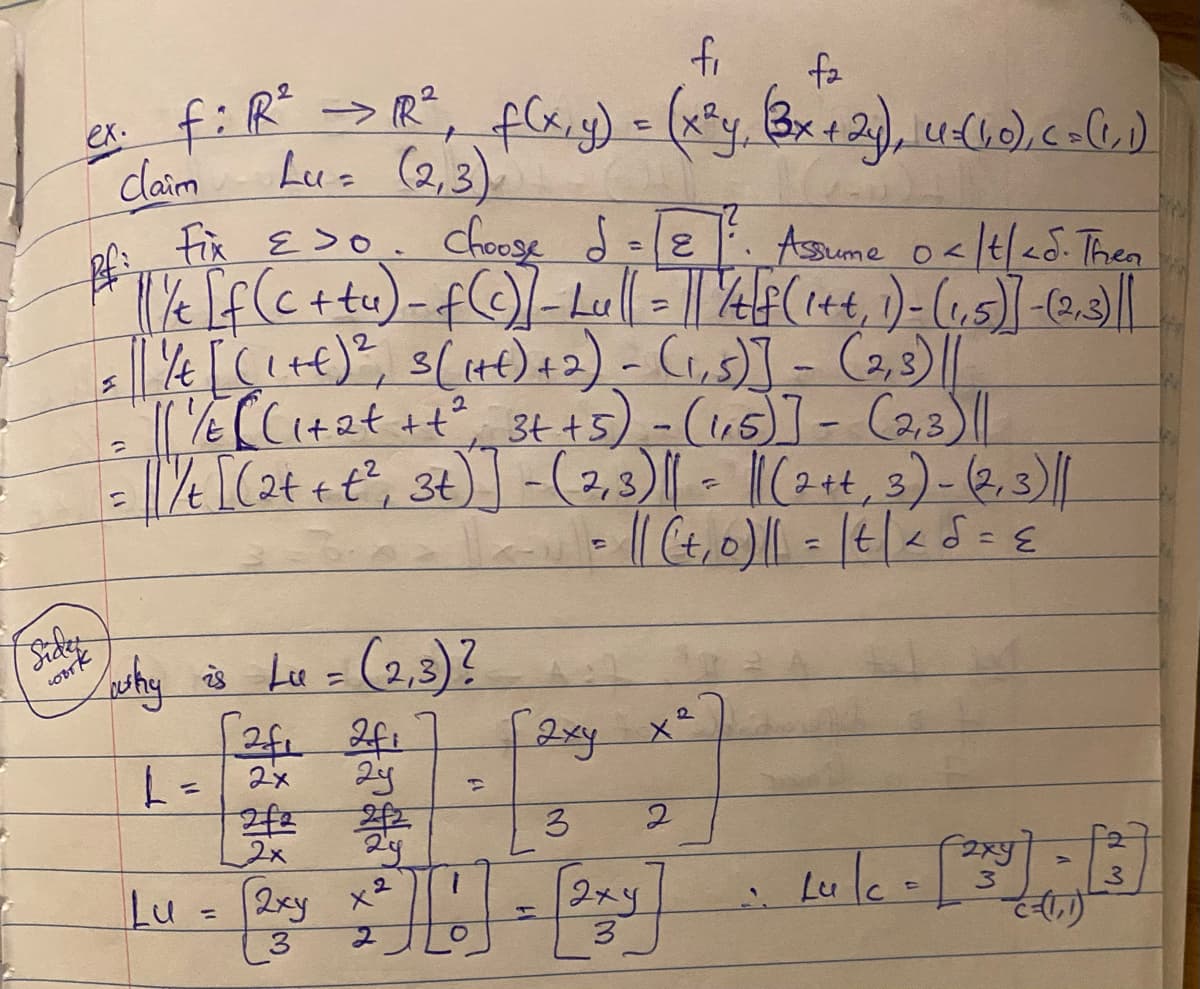 f₁ f₂
ex. f: ℝ² → ℝ², f(x,y) = (x²y, (3x + 2y), u=(1,0), c=(1,1)
Claim Lu = (2,3)
Pf: Fix ε > 0. Choose d = [ε]?. Assume 0 < |t| < δ. Then
||1/t [f(c + tu) - f(c)] - Lu|| = ||1/t[f(1+t, 1) - (1,5)] - (2,3)||
= ||1/t [(1+t)², 3(1+t) + 2) - (1,5)] - (2,3)||
= ||1/t [(1 + 2t + t², 3t + 5) - (1,5)] - (2,3)||
= ||1/t [(2t + t², 3t)] - (2,3)|| = ||(2+t, 3) - (2,3)||
= ||(t,0)|| = |t| < δ = ε
Side work
why is Lu = (2,3)?
L = [∂f₁/∂x ∂f₁/∂y; ∂f₂/∂x ∂f₂/∂y] = [2xy x²; 3 2]
Lu = [2xy x²; 3 2][1; 0] = [2xy; 3] ∴ Lu|c = [2xy; 3] c=(1,1) = [2; 3]